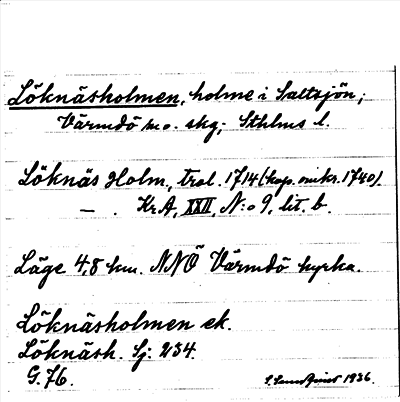 Löknäsholmen, holme i Saltsjön;
Värmdö m.o. skg; Sthlms l.
Löknäs Holm, tral. 1714 (kop. omkr. 1740).
— . KrA, XXII, N:o 9, lit. b.
Läge 4,8 km. NNÖ Värmdö kyrka.
Löknäsholmen ek.
Löknäsh. Sj: 234.
G. 76. S. Sundquist 1936.